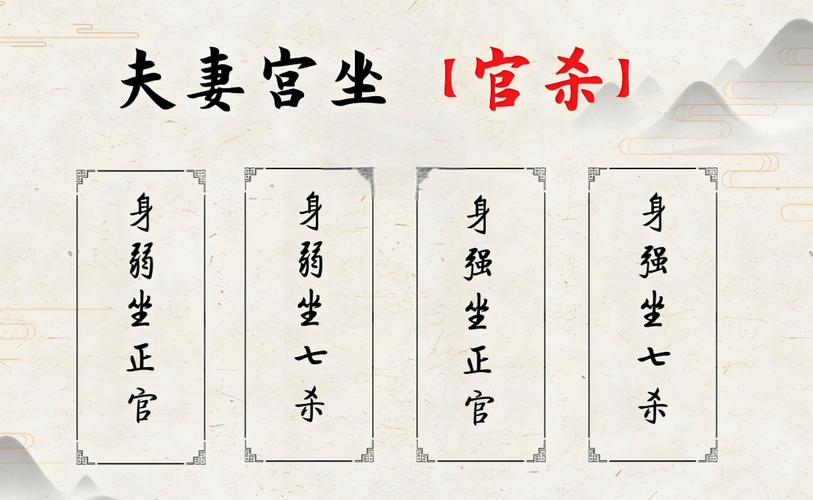 夫妻宫坐【官杀】
身弱坐正官
身弱坐七杀
身强坐正官
身强坐七杀